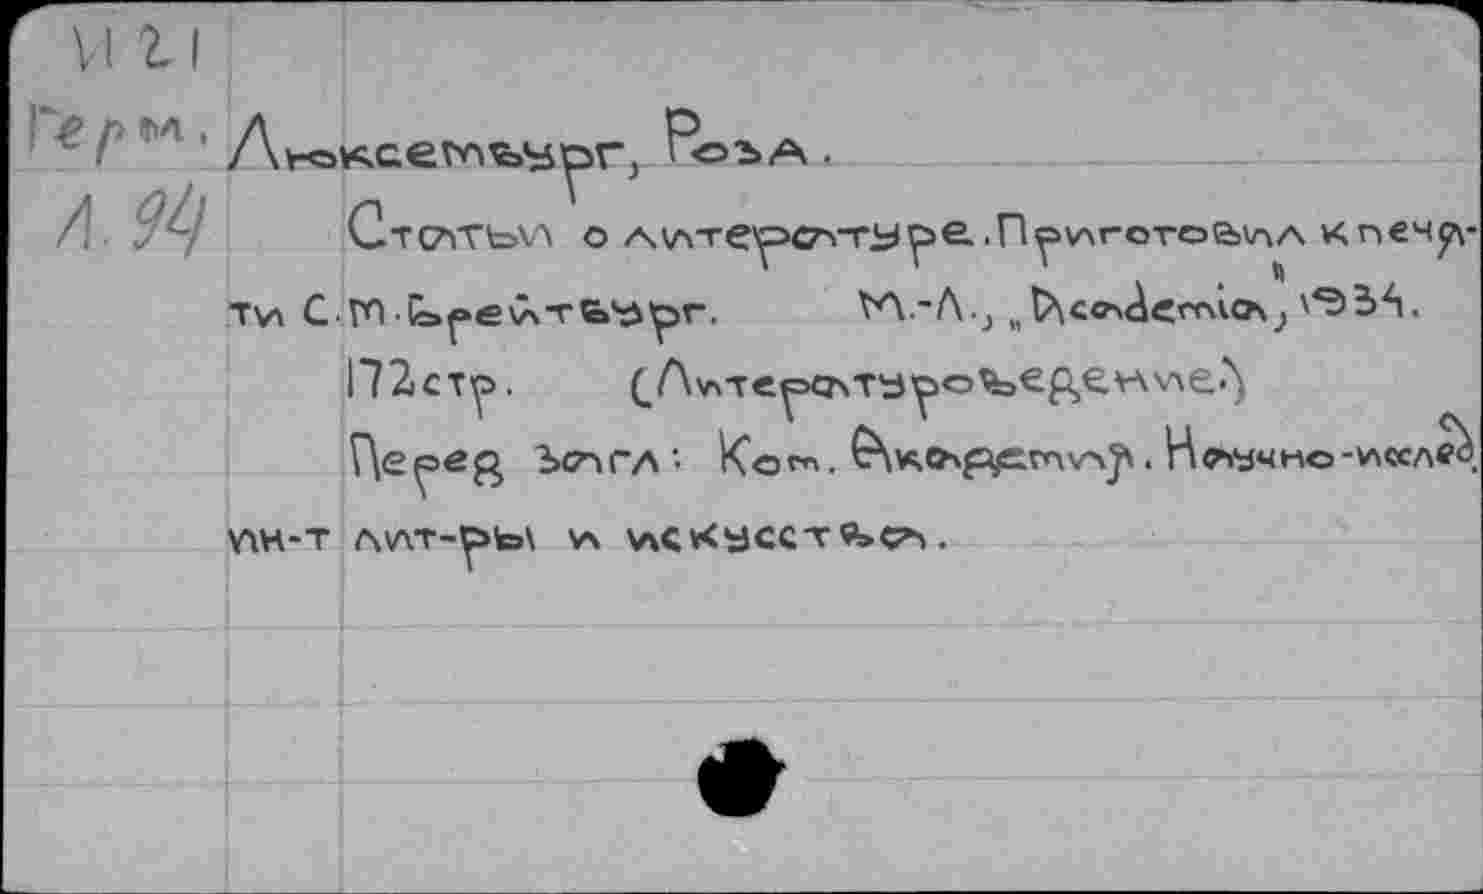 И 21
Герм.
Л. 94
Люксембург, Роза.
Статьи о литературе. Приготовил к печа-
ти С.М.Брейтвург. М.-Л., „Academia", 1934.
172 стр. (Литературоведение.)
Перед загл: Ком. Академия. Научно-исслед.
ин-т лит-ры и искусства.